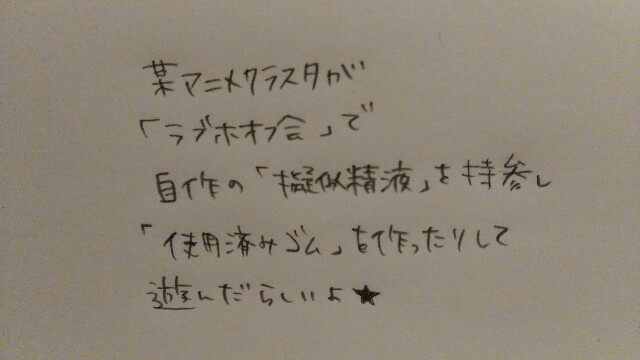 某アニメクラスタが
「ラブホオフ会」で
自作の「擬似精液」を持参し
「使用済みゴム」を作ったりして
遊んだらしいよ★